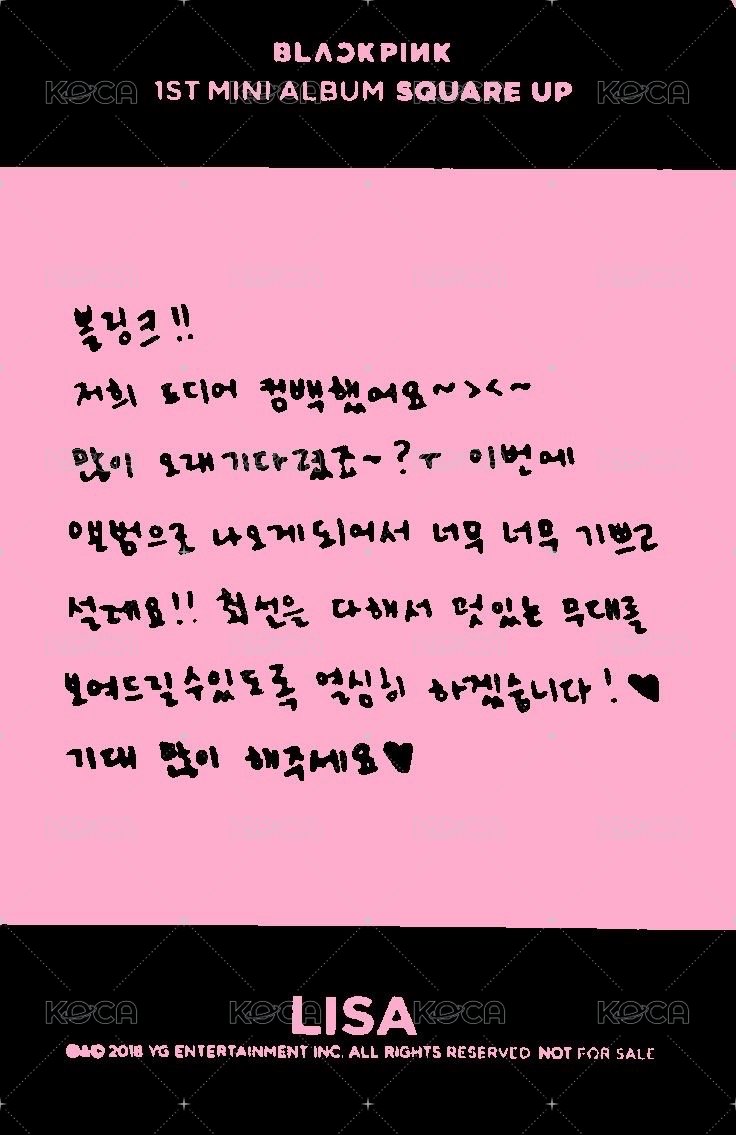 BLACKPINK
1ST MINI ALBUM SQUARE UP
블링크!!
저희 드디어 컴백했어요~><~
많이 오래기다렸죠~?ㅜ 이번에
앨범으로 나오게되어서 너무 너무 기쁘고
설레요!! 최선을 다해서 멋있는 무대를
보여드릴수있도록 열심히 하겠습니다!♥
기대 많이 해주세요♥
LISA
2018 YG ENTERTAINMENT INC. ALL RIGHTS RESERVED NOT FOR SALE
KOCA